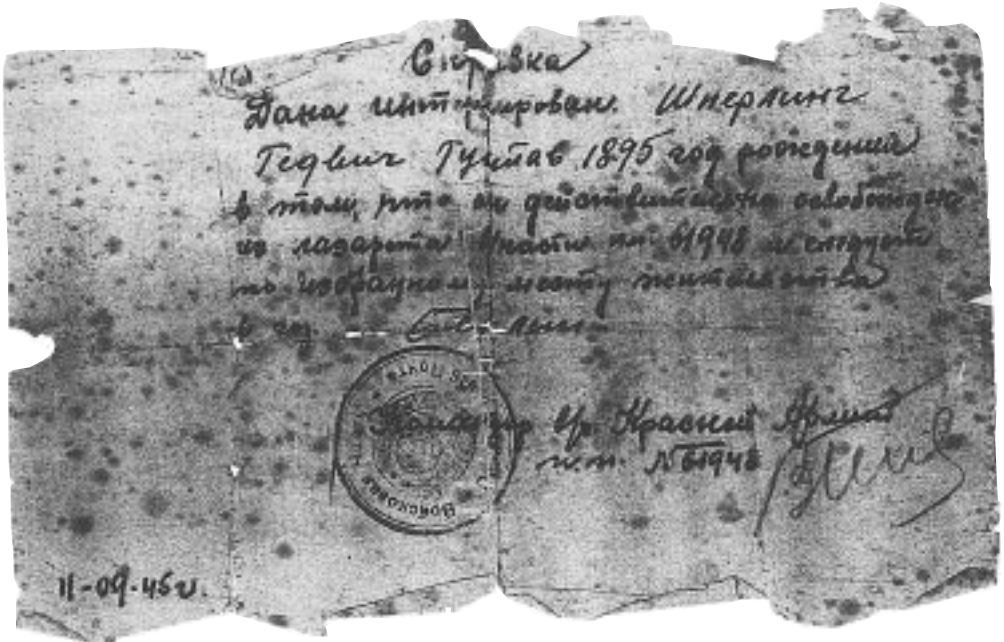 Справка
Дана интернирован. Шперлинг
Гедвиг Густав 1895 год рождения
в том, что он действительно освобожден
из лазарета части пп 61948 и следует
по избранному месту жительства
в
Командир Красной Армии
п.п. N 61948
Войсковая
почта
11-09-45г.